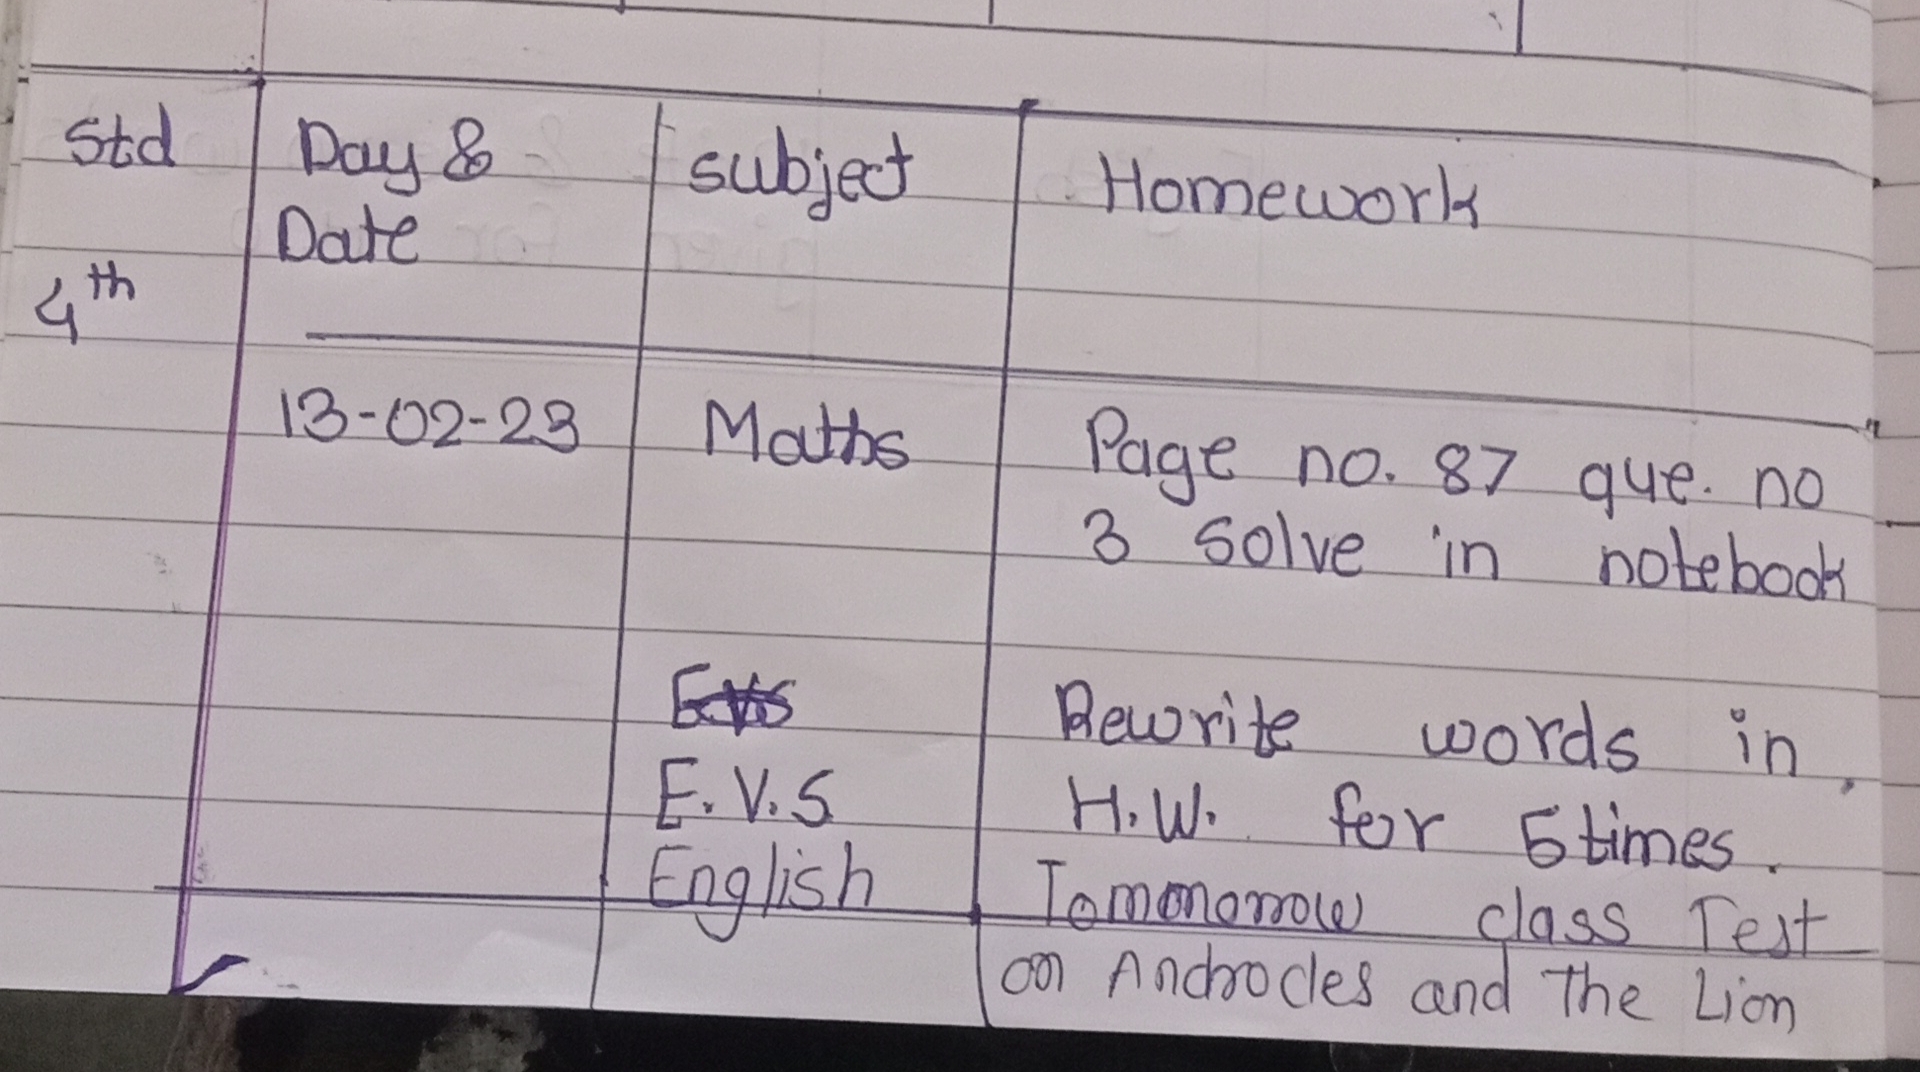 Std Day & subject Homework
Date
4th
13-02-23 Maths Page no. 87 que. no
3 Solve in notebook
Rewrite words in
E.V.S H.W. for 5 times.
English Tommorrow class Test
on Androcles and The Lion